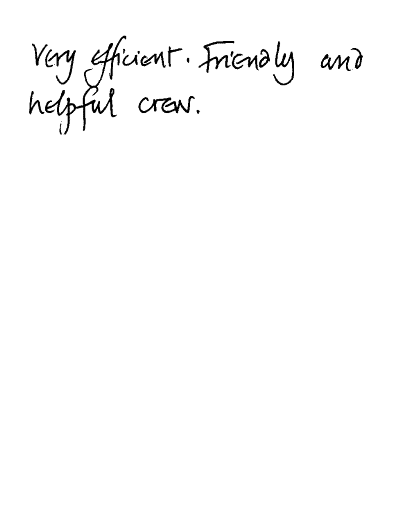 Very efficient. Friendly and
helpful crew.